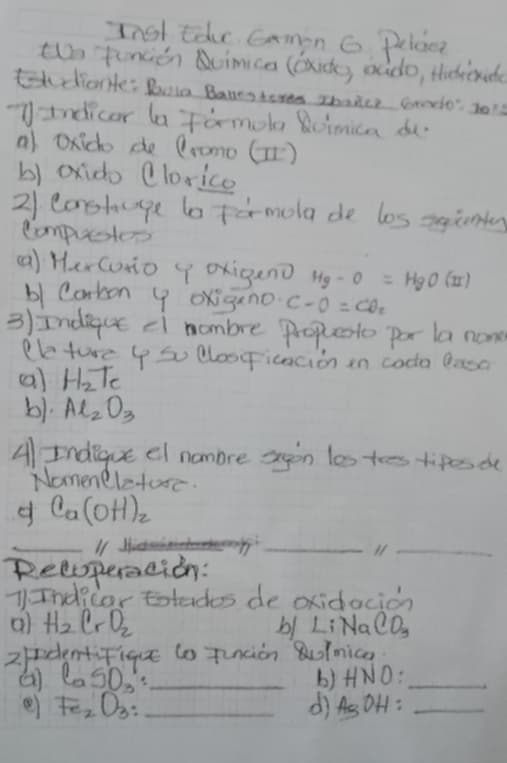 Inst Educ. Gamón G. Peláez
Función Química (óxido, ácido, Hidróxido
Estudiante: Ballesteros Grado:
1) Indicar la Fórmula Química de:
a) Oxido de Cromo (II)
b) Oxido Clorico
2) Construye la Fórmula de los siguientes
Compuestos
a) Mercurio y oxigeno Hg - O = HgO (II)
b) Carbon y oxigeno. C - O = CO₂
3) Indique el nombre Propuesto por la nomen
clatura y su Clasificación en cada Caso
a) H₂Te
b). Al₂O₃
4) Indique el nombre según los tres tipos de
Nomenclatura.
Ca(OH)₂
Recuperación:
1) Indicar Estados de oxidación
a) H₂CrO₂ b) LiNaCO₃
2) Identifique la Función Química.
a) CaSO₃: b) HNO:
c) Fe₂O₃: d) AgOH: